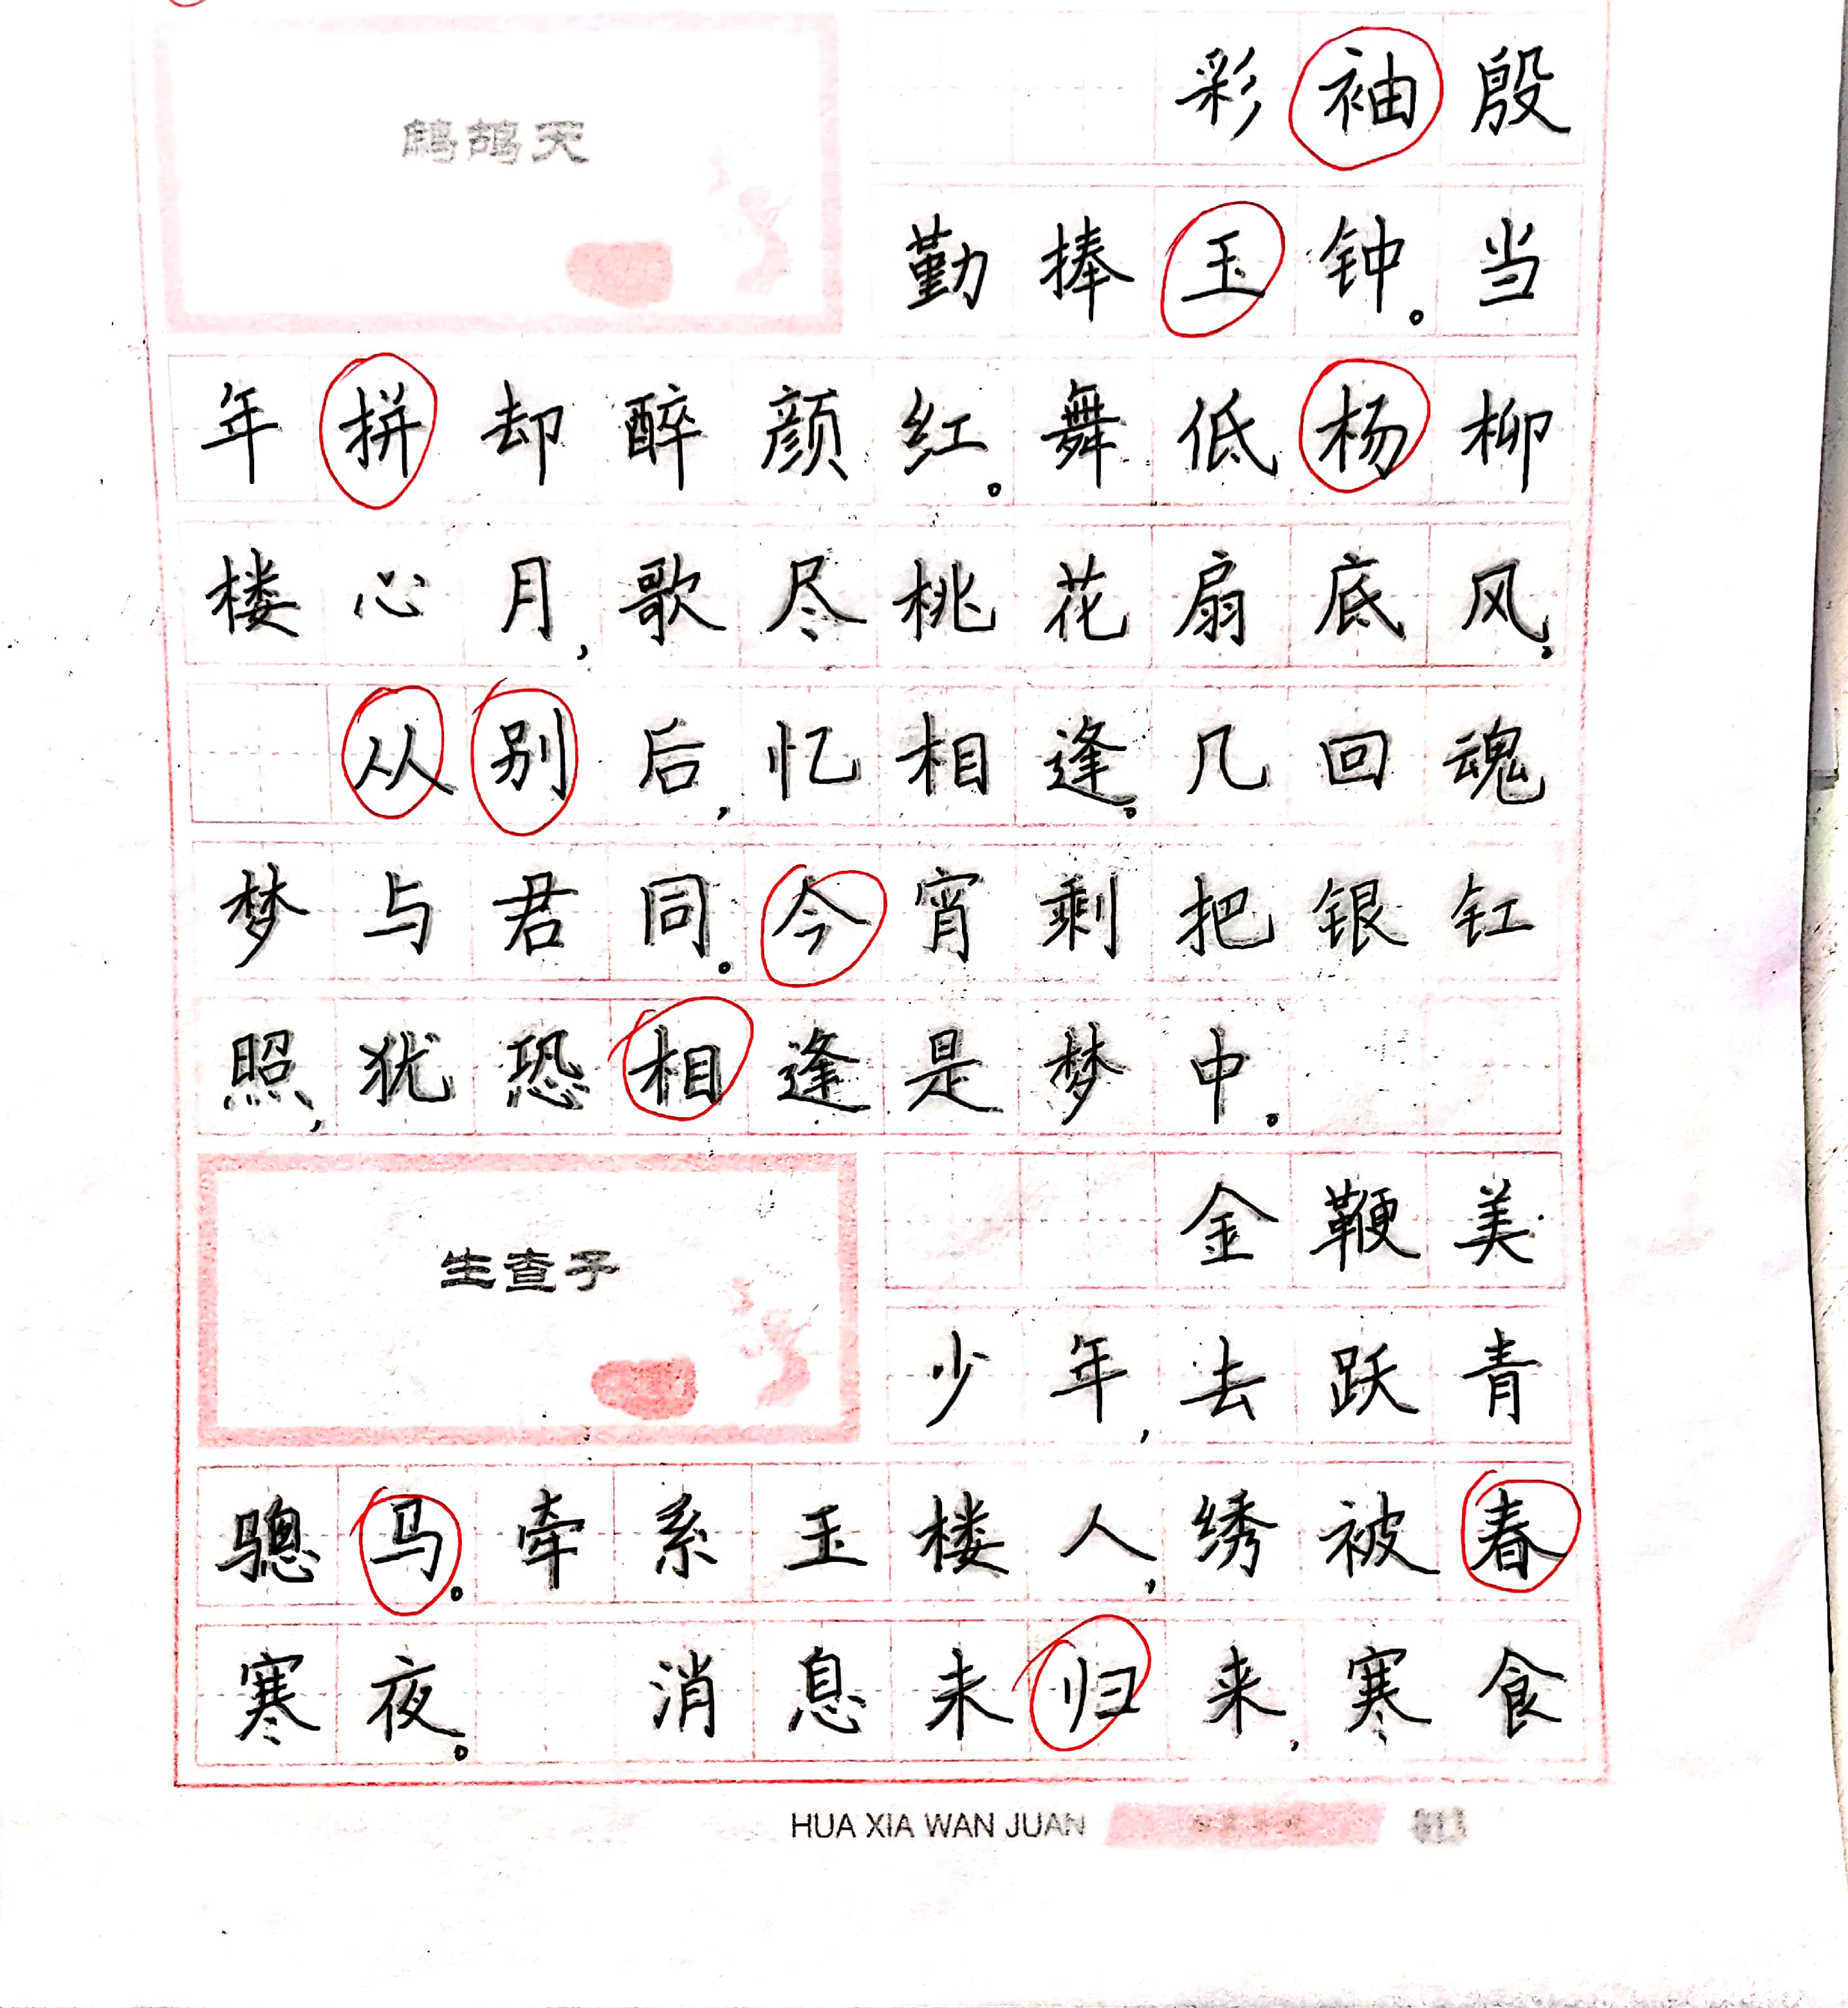 鹧鸪天
彩袖殷
勤捧玉钟。当
年拼却醉颜红。舞低杨柳
楼心月,歌尽桃花扇底风。
从别后,忆相逢。几回魂
梦与君同。今宵剩把银釭
照,犹恐相逢是梦中。
生查子
金鞭美
少年,去跃青
骢马。牵系玉楼人,绣被春
寒夜。 消息未归来,寒食
HUA XIA WAN JUAN